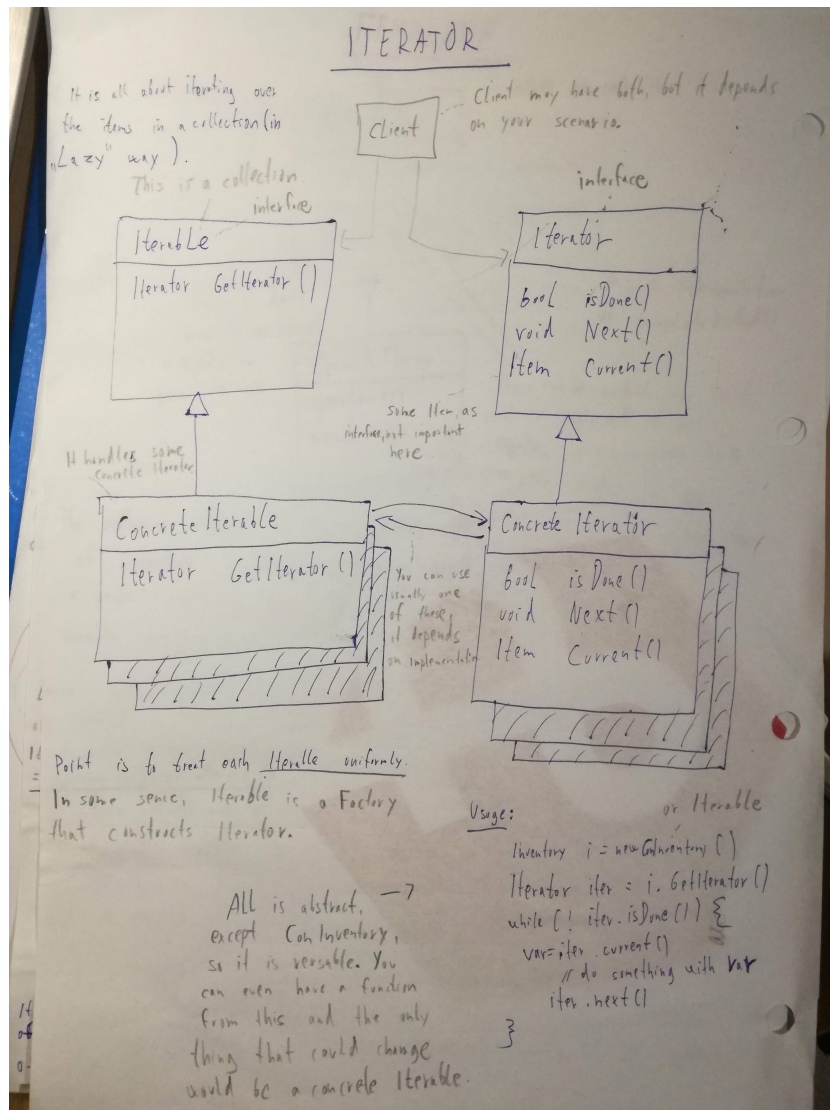 ITERATOR
It is all about iterating over
the items in a collection (in
„Lazy" way ).
Client
Client may have both, but it depends
on your scenario.
This is a collection.
interface
Iterable
Iterator GetIterator ()
interface
Iterator
bool isDone()
void Next()
Item Current()
Some Item, as
interface, not important
here.
It handles some
concrete Iterator
Concrete Iterable
Iterator GetIterator ()
Concrete Iterator
bool isDone()
void Next()
Item Current()
You can use
usually one
of these,
it depends
on implementation
Point is to treat each Iterable uniformly.
In some sence, Iterable is a Factory
that constructs Iterator.
All is abstract, →
except ConInventory,
so it is reusable. You
can even have a function
from this and the only
thing that could change
would be a concrete Iterable.
Usage:
or Iterable
Inventory i = new ConInventory ()
Iterator iter = i. GetIterator ()
while (! iter. isDone()) {
var = iter. current()
// do something with var
iter. next()
}